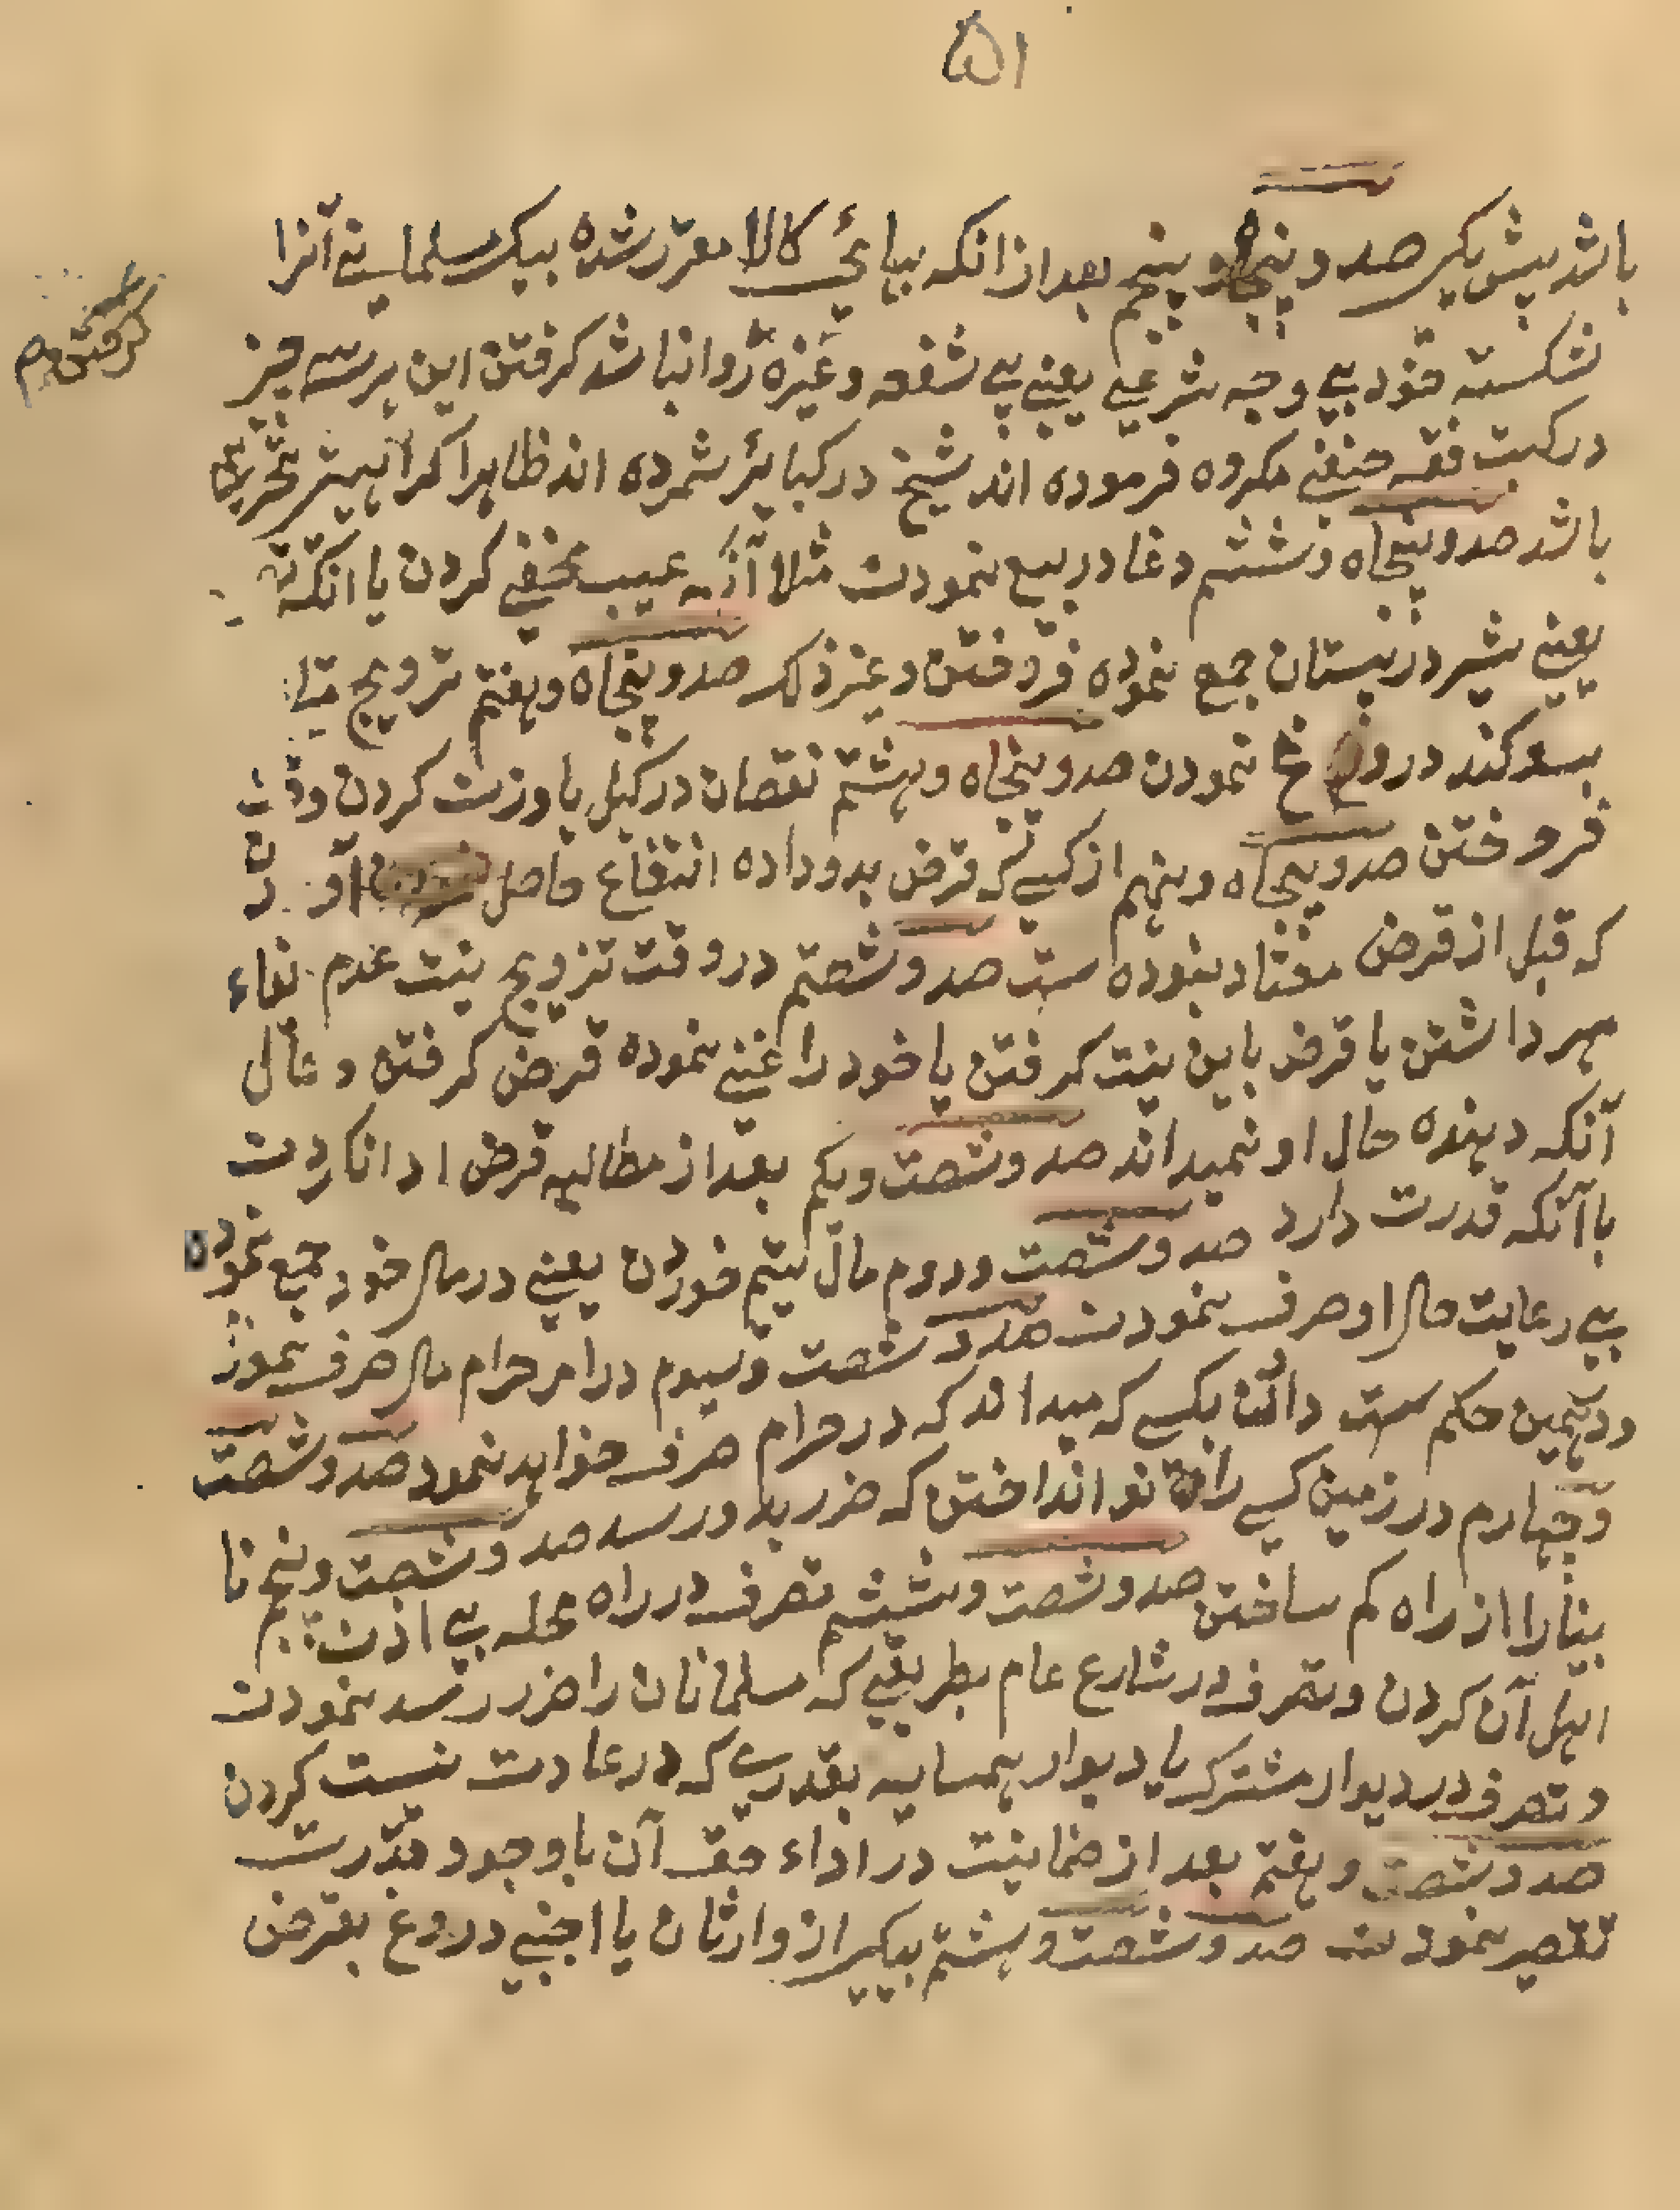 ۵۱
باشد پیش یکی صد و پنجاه و پنجم بعد از انکه ببهائی کالا مقرر شده بیک مسلمانے آنرا
شکسته خود بے وجه شرعی یعنے بے شفعه و غیره روا نباشد گرفتن این هر سه چیز
گرفتن
در کتب فقه حنفی مکروه فرموده اند شیخ در کبایر شمرده اند ظاهرا کراهیت تحریمی
باشد صد و پنجاه و ششم دغا در بیع نمودن مثلا آنکه عیب مخفی کردن یا انکه
یعنے شیر در پستان جمع نموده فروختن و غیر ذلک صد و پنجاه و هفتم ترویج متاع
بسوکند دروغ نمودن صد و پنجاه و هشتم نقصان در کیل یا وزن کردن وقت
فروختن صد و پنجاه و نهم از کسی که قرض بدو داده انتفاع حاصل
که قبل از قرض معتاد نبوده ست صد و شصتم در وقت تزویج نیت عدم ایفاء
مهر داشتن یا قرض باین نیت گرفتن یا خود را غنے نموده قرض گرفتن و حال
آنکه دهنده حال او نمیداند صد و شصت و یکم بعد از مطالبه قرض ادا نکردن
با آنکه قدرت دارد صد و شصت و دوم مال یتیم خوردن یعنے در مال خود جمع نموده
بے رعایت مال او صرف نمودن صد و شصت و سیوم در امر حرام مال صرف نمودن
و در همین حکم ست دادن بکسے که میداند که در حرام صرف خواهد نمود صد و شصت
و چهارم در زمین کسی را انداختن که ضرر بد و رسد صد و شصت و پنجم نا
بینا را از راه گم ساختن صد و شصت و ششم تصرف در راه محله بے اذن
اهل آن کردن و تصرف در شارع عام بطریقے که مسلمانان را ضرر رسد نمودن
و تصرف در دیوار مشترک یا دیوار همسایه بقدرے که در عادت نیست کردن
صد و شصت و هفتم بعد از ضمانیت در اداء حق آن با وجود قدرت
تقصیر نمودن صد و شصت و هشتم بیکی از وارثان یا اجنبے دروغ بقرض